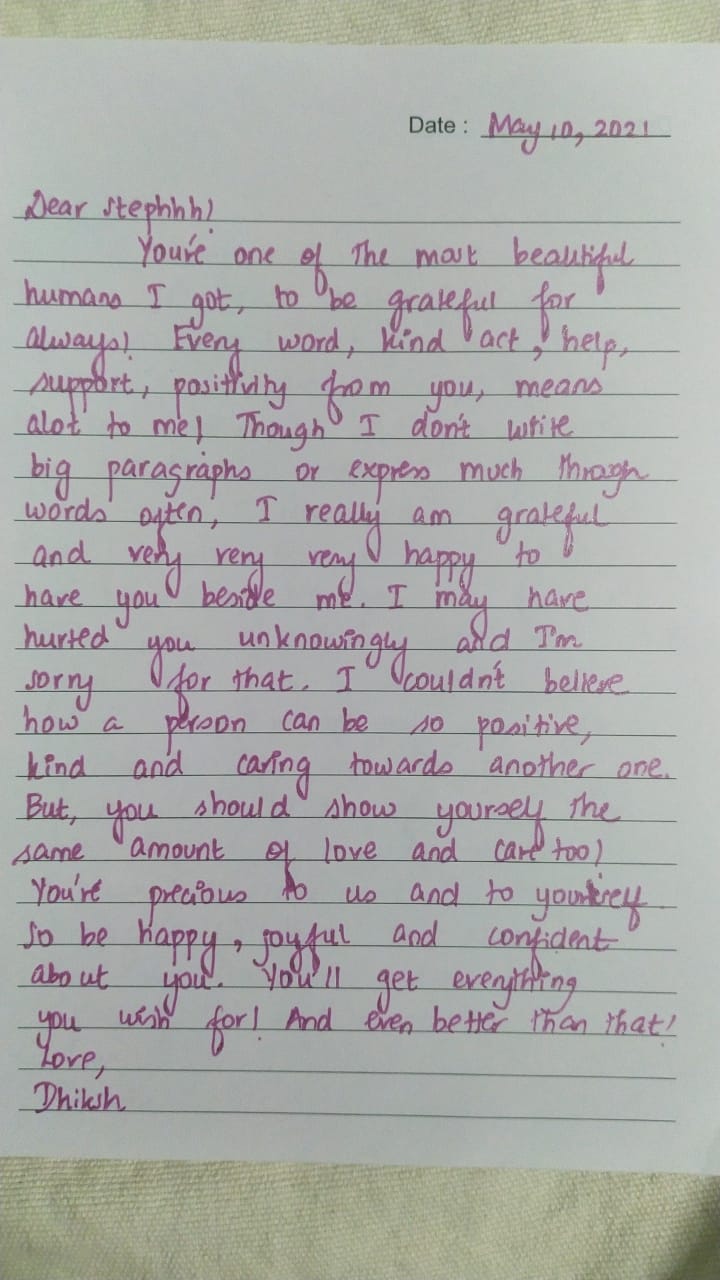 Date : May 10, 2021
Dear stephhh!
You're one of the most beautiful
humans I got, to be grateful for
always! Every word, kind act, help,
support, positivity from you, means
alot to me! Though I don't write
big paragraphs or express much through
words often, I really am grateful
and very very very happy to
have you beside me. I may have
hurted you unknowingly and I'm
sorry for that. I couldn't believe
how a person can be so positive,
kind and caring towards another one.
But, you should show yourself the
same amount of love and care too!
You're precious to us and to yourself
so be happy, joyful and confident
about you. You'll get everything
you wish for! And even better than that!
Love,
Dhiksh